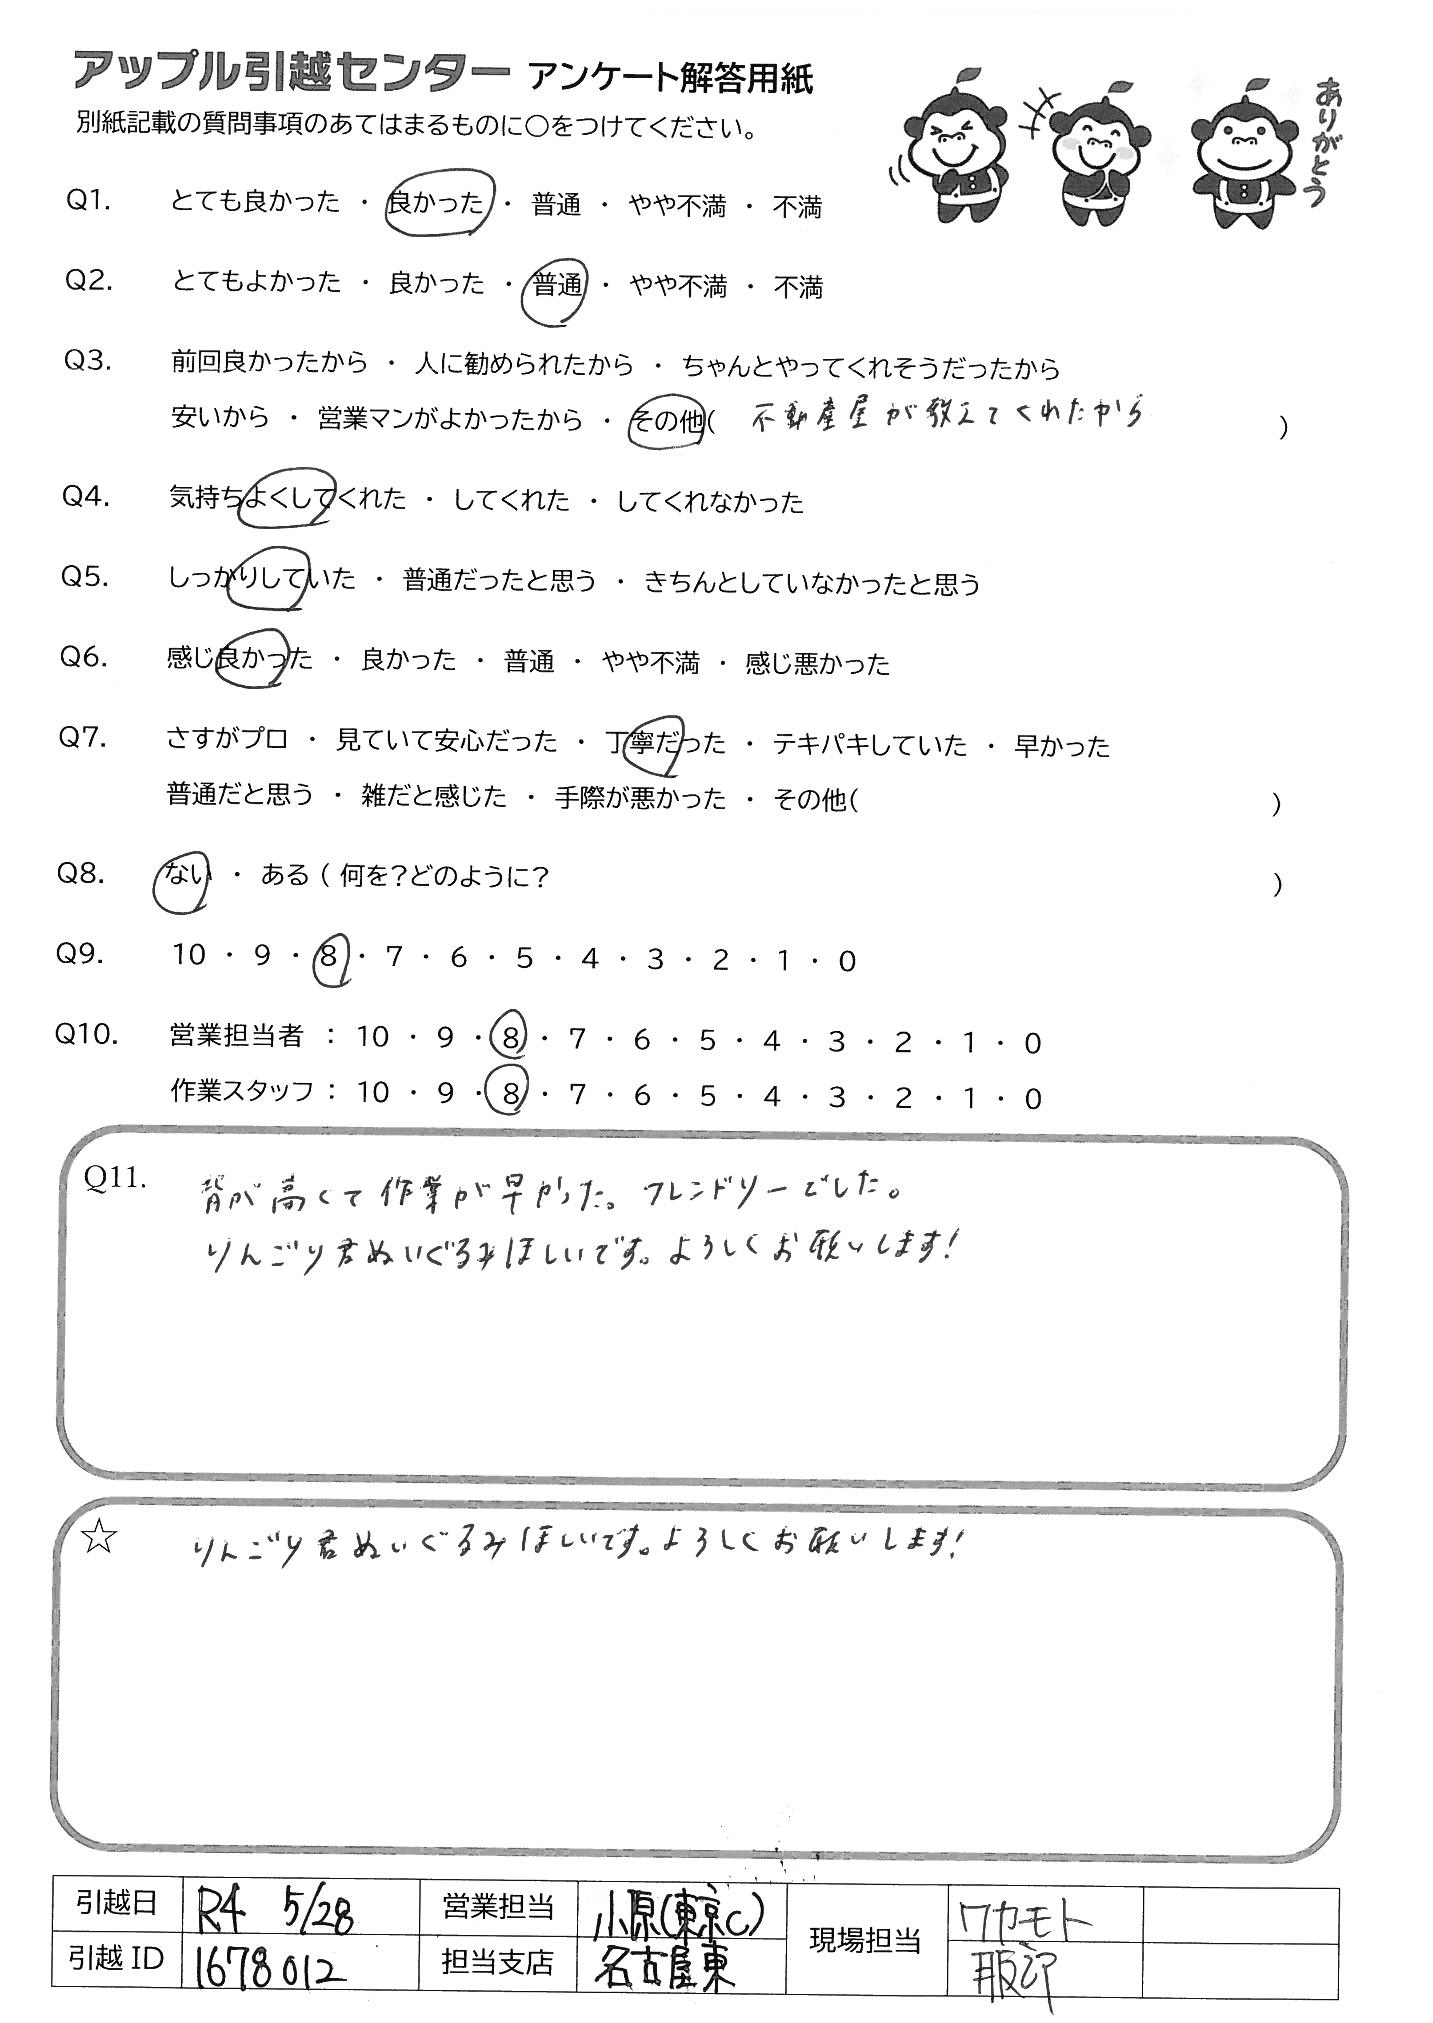 アップル引越センター アンケート解答用紙
別紙記載の質問事項のあてはまるものに〇をつけてください。
ありがとう
Q1. とても良かった ・ 良かった ・ 普通 ・ やや不満 ・ 不満
Q2. とてもよかった ・ 良かった ・ 普通 ・ やや不満 ・ 不満
Q3. 前回良かったから ・ 人に勧められたから ・ ちゃんとやってくれそうだったから
安いから ・ 営業マンがよかったから ・ その他( 不動産屋が教えてくれたから )
Q4. 気持ちよくしてくれた ・ してくれた ・ してくれなかった
Q5. しっかりしていた ・ 普通だったと思う ・ きちんとしていなかったと思う
Q6. 感じ良かった ・ 良かった ・ 普通 ・ やや不満 ・ 感じ悪かった
Q7. さすがプロ ・ 見ていて安心だった ・ 丁寧だった ・ テキパキしていた ・ 早かった
普通だと思う ・ 雑だと感じた ・ 手際が悪かった ・ その他( )
Q8. ない ・ ある ( 何を?どのように? )
Q9. 10 ・ 9 ・ 8 ・ 7 ・ 6 ・ 5 ・ 4 ・ 3 ・ 2 ・ 1 ・ 0
Q10. 営業担当者 : 10 ・ 9 ・ 8 ・ 7 ・ 6 ・ 5 ・ 4 ・ 3 ・ 2 ・ 1 ・ 0
作業スタッフ : 10 ・ 9 ・ 8 ・ 7 ・ 6 ・ 5 ・ 4 ・ 3 ・ 2 ・ 1 ・ 0
Q11. 背が高くて作業が早かった。フレンドリーでした。
りんごり君ぬいぐるみほしいです。よろしくお願いします!
☆ りんごり君ぬいぐるみほしいです。よろしくお願いします!
引越日 R4 5/28 営業担当 小原(東京C) 現場担当 ワカモト
引越ID 1678012 担当支店 名古屋東